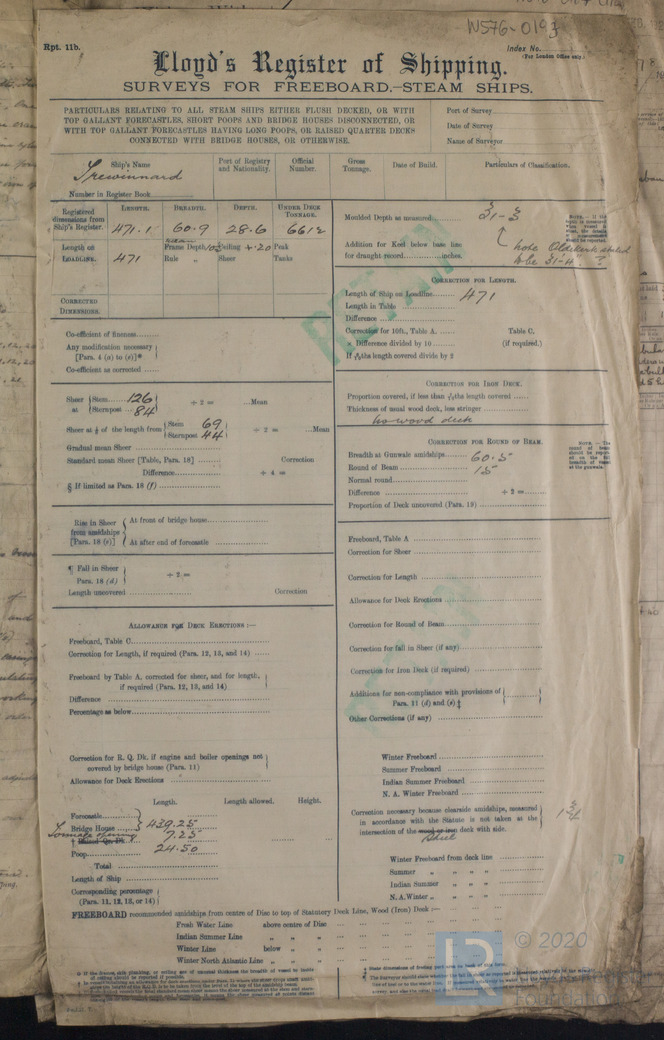 W576-0193
Rpt. 11b.
Index No.
(For London Office only.)
Lloyd's Register of Shipping.
SURVEYS FOR FREEBOARD.—STEAM SHIPS.
PARTICULARS RELATING TO ALL STEAM SHIPS EITHER FLUSH DECKED, OR WITH
TOP GALLANT FORECASTLES, SHORT POOPS AND BRIDGE HOUSES DISCONNECTED, OR
WITH TOP GALLANT FORECASTLES HAVING LONG POOPS, OR RAISED QUARTER DECKS
CONNECTED WITH BRIDGE HOUSES, OR OTHERWISE.
Port of Survey
Date of Survey
Name of Surveyor
Ship's Name
Port of Registry and Nationality.
Official Number.
Gross Tonnage.
Date of Build.
Particulars of Classification.
Trewinnard
Number in Register Book
Registered dimensions from Ship's Register.
LENGTH. BREADTH. DEPTH. UNDER DECK TONNAGE.
471.1 60.9 28.6 6612
Length on LOADLINE. 471
Frame Depth Ceiling +.20 Peak
Rule " Sheer Tanks
CORRECTED DIMENSIONS.
Co-efficient of fineness
Any modification necessary
[Para. 4 (a) to (e)]*
Co-efficient as corrected
Sheer at Stem 126 ÷ 2 = Mean
Sternpost 84
Sheer at ⅛ of the length from Stem 69 ÷ 2 = Mean
Sternpost 44
Gradual mean Sheer
Standard mean Sheer [Table, Para. 18] Correction
Difference ÷ 4 =
§ If limited as Para. 18 (f)
Rise in Sheer from amidships [Para. 18 (e)]
At front of bridge house
At after end of forecastle
¶ Fall in Sheer Para. 18 (d) ÷ 2 =
Length uncovered Correction
ALLOWANCE FOR DECK ERECTIONS :—
Freeboard, Table C
Correction for Length, if required (Para. 12, 13, and 14)
Freeboard by Table A, corrected for sheer, and for length,
if required (Para. 12, 13, and 14)
Difference
Percentage as below
Correction for R. Q. Dk. if engine and boiler openings not
covered by bridge house (Para. 11)
Allowance for Deck Erections
Length. Length allowed. Height.
Forecastle
Bridge House 439.25
Tonnage opening 7.25
† Raised Qr. Dk.
Poop 24.50
Total
Length of Ship
Corresponding percentage
(Para. 11, 12, 13, or 14)
Moulded Depth as measured 31-3
hope Oldekerk stated
to be 31-4. ?
Addition for Keel below base line
for draught record inches.
CORRECTION FOR LENGTH.
Length of Ship on Loadline 471
Length in Table
Difference
Correction for 10ft., Table A. Table C.
Difference divided by 10 (if required.)
If ⁶⁄₁₀ths length covered divide by 2
CORRECTION FOR IRON DECK.
Proportion covered, if less than ⁷⁄₁₀ths length covered
Thickness of usual wood deck, less stringer
No wood deck
CORRECTION FOR ROUND OF BEAM.
Breadth at Gunwale amidships 60.5
Round of Beam 15
Normal round
Difference ÷ 2 =
Proportion of Deck uncovered (Para. 19)
Freeboard, Table A
Correction for Sheer
Correction for Length
Allowance for Deck Erections
Correction for Round of Beam
Correction for fall in Sheer (if any)
Correction for Iron Deck (if required)
Additions for non-compliance with provisions of
Para. 11 (d) and (e)
Other Corrections (if any)
Winter Freeboard
Summer Freeboard
Indian Summer Freeboard
N. A. Winter Freeboard
Correction necessary because clearside amidships, measured
in accordance with the Statute is not taken at the
intersection of the wood or iron deck with side.
Steel
1¾
Winter Freeboard from deck line
Summer " " "
Indian Summer " " "
N. A. Winter " " "
FREEBOARD recommended amidships from centre of Disc to top of Statutory Deck Line, Wood (Iron) Deck :—
Fresh Water Line above centre of Disc
Indian Summer Line " "
Winter Line below "
Winter North Atlantic Line " "
RETAIN
RETAIN
LR
© 2020
Foundation